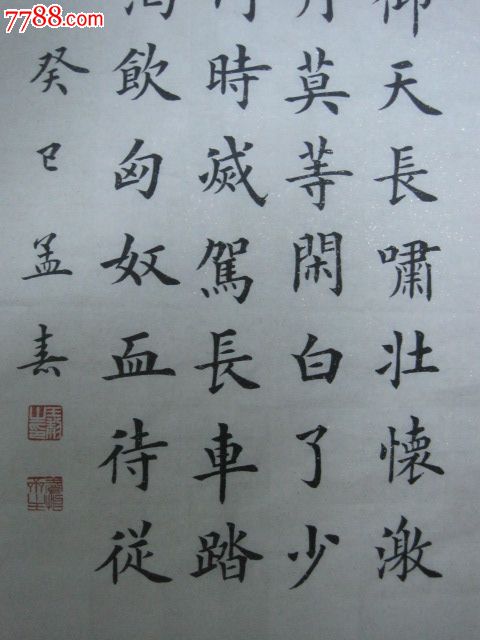 7788.com
仰天長嘯壯懷激
月莫等閑白了少
時滅駕長車踏
飲匈奴血待從
癸巳孟春